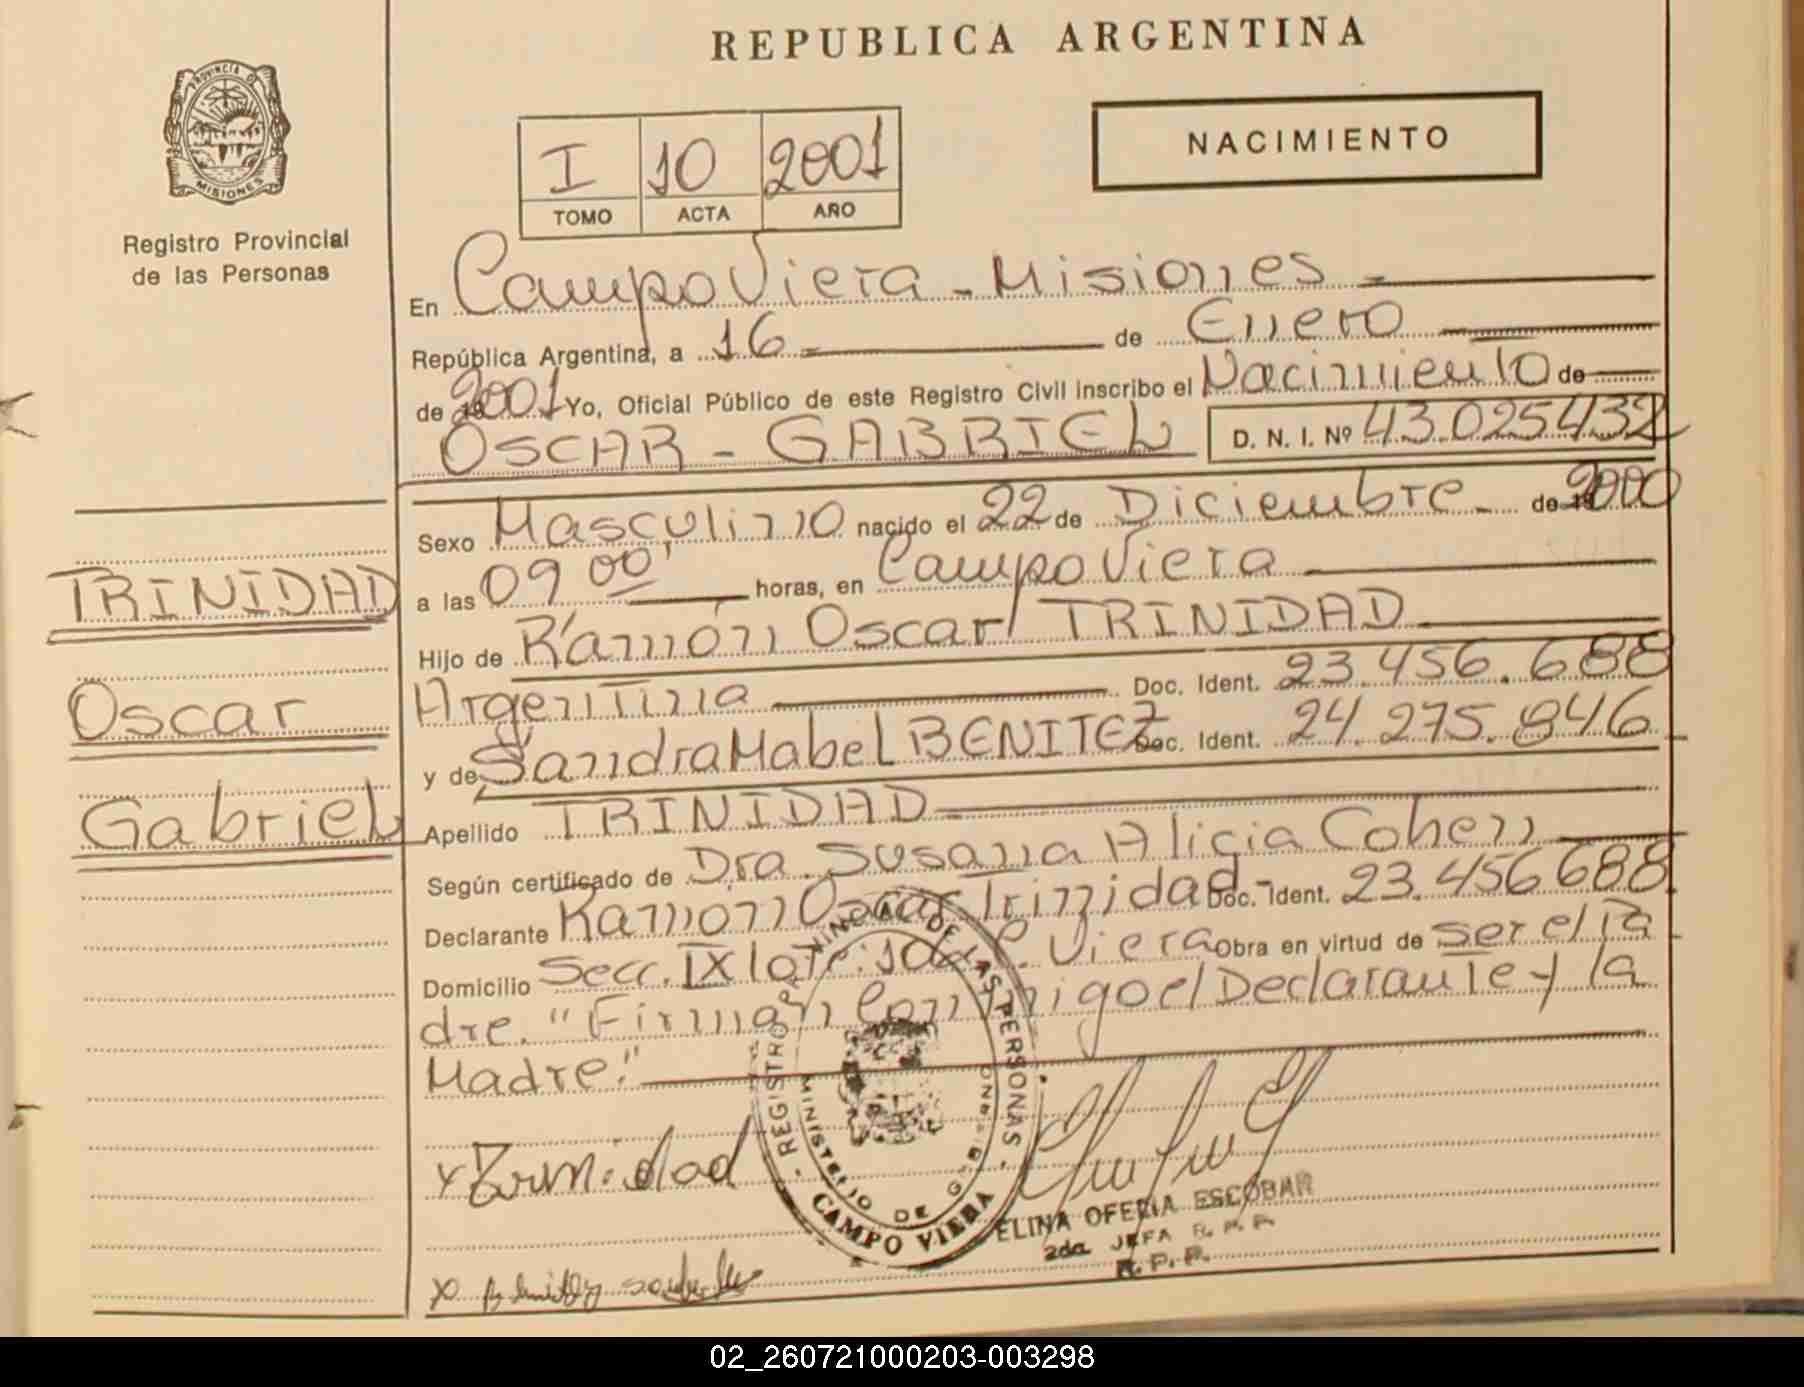 REPUBLICA ARGENTINA
PROVINCIA DE
MISIONES
Registro Provincial
de las Personas
I 10 2001
TOMO ACTA AÑO
NACIMIENTO
En Campo Viera - Misiones -
República Argentina, a 16 de Enero
de 19 2001 Yo, Oficial Público de este Registro Civil inscribo el Nacimiento de
OSCAR - GABRIEL D. N. I. Nº 43.025432
Sexo Masculino nacido el 22 de Diciembre - de 19 2000
a las 09 00' horas, en Campo Viera
Hijo de Ramón Oscar TRINIDAD
Argentina Doc. Ident. 23.456.688
y de Sandra Mabel BENITEZ Doc. Ident. 24.275.846
Apellido TRINIDAD
Según certificado de Dra. Susana Alicia Cohen
Declarante Ramón Oscar Trinidad - Doc. Ident. 23.456688
Domicilio Secc. IX lote: C. Viera Obra en virtud de ser el Pa
dre. "Firman Conmigo el Declarante y la
Madre."
TRINIDAD
Oscar
Gabriel
x Trinidad
REGISTRO PROVINCIAL DE LAS PERSONAS
MINISTERIO DE GOBIERNO
CAMPO VIERA
ELINA OFELIA ESCOBAR
2da JEFA R. P. P.
R. P. P.
x
02_260721000203-003298